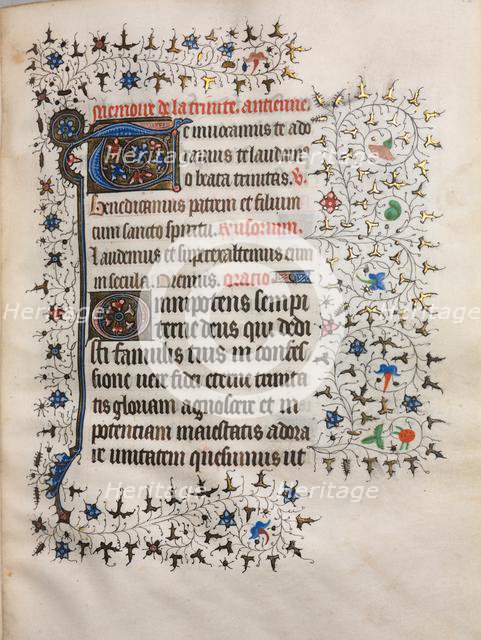 Memoire de la trinite. antienne.
Te inuocamus te ado
ramus te laudam
o beata trinitas. V.
Benedicamus patrem et filium
cum sancto spiritu. Responsorium.
Laudemus et superexaltemus eum
in secula. Oremus. Oratio
Omnipotens sempi
terne deus qui dedi
sti famulis tuis in confes
sione vere fidei eterne trinita
tis gloriam agnoscere et in
potentiam maiestatis adora
re unitatem quesumus ut
Heritage
Heritage
Heritage
Heritage
Heritage
Heritage
Heritage